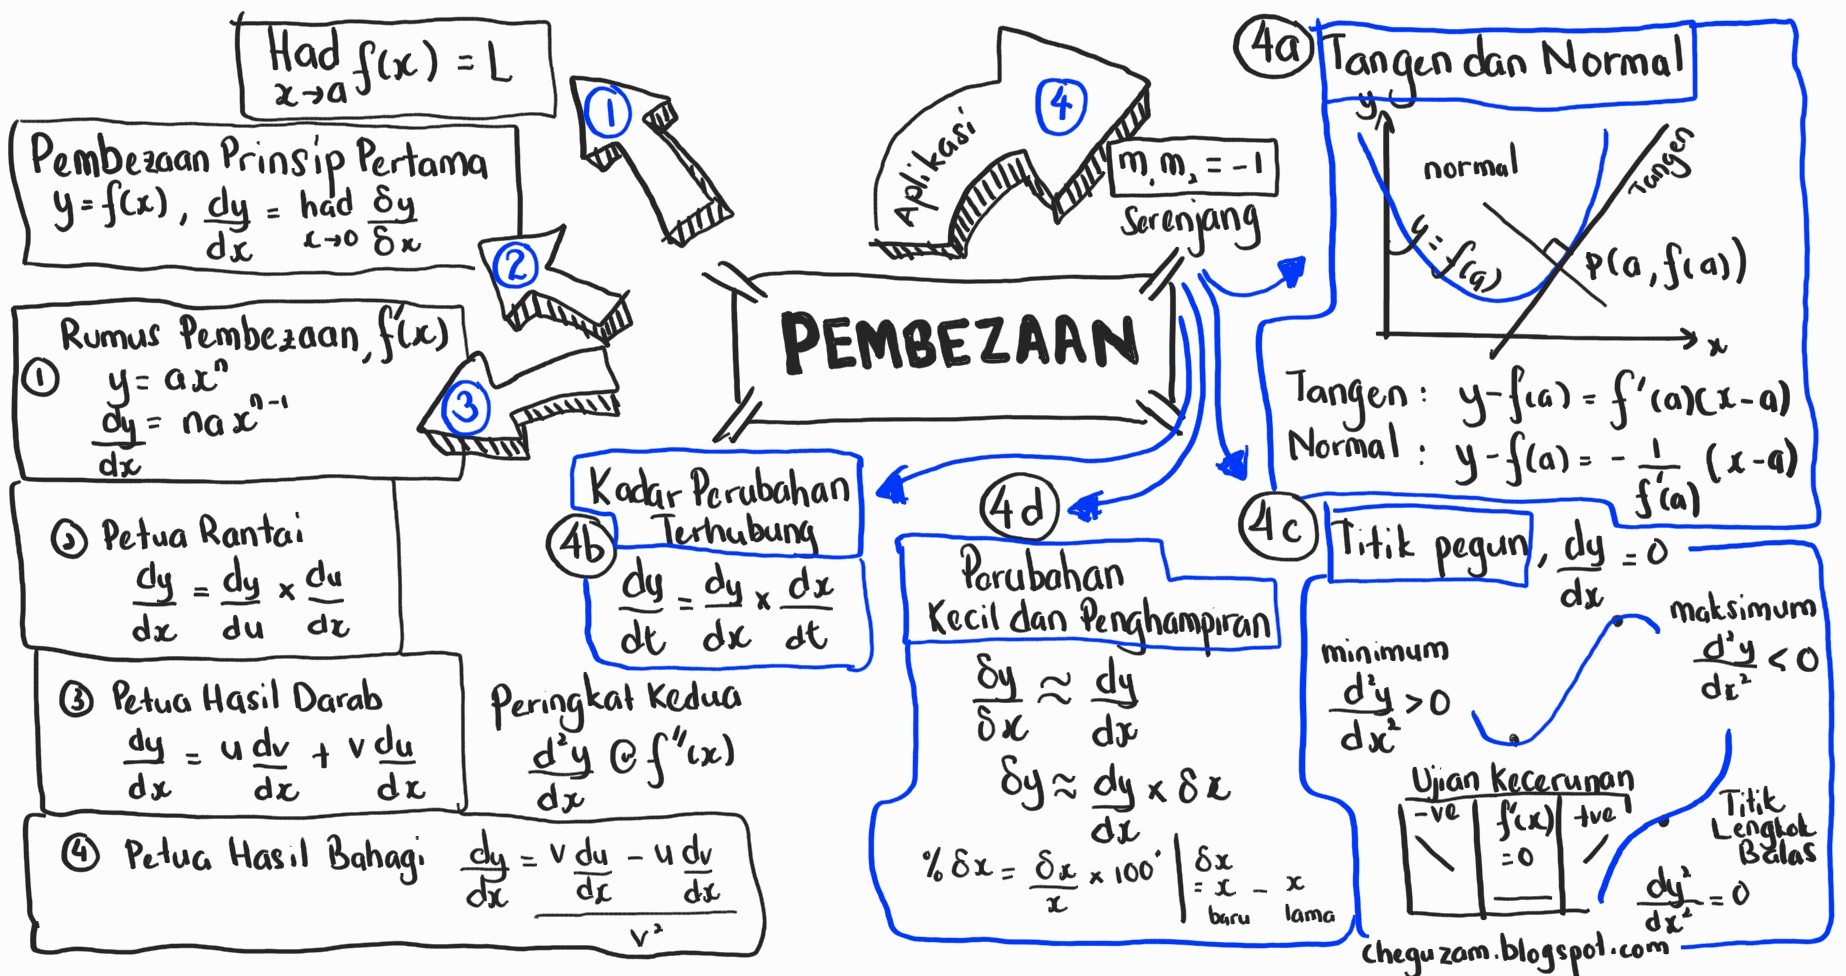 Had f(x) = L
x→a
1
Pembezaan Prinsip Pertama
y = f(x), dy/dx = had x→0 δy/δx
2
Rumus Pembezaan, f'(x)
① y = axⁿ
dy/dx = naxⁿ⁻¹
3
② Petua Rantai
dy/dx = dy/du × du/dx
③ Petua Hasil Darab
dy/dx = u dv/dx + v du/dx
Peringkat Kedua
d²y/dx @ f''(x)
④ Petua Hasil Bahagi dy/dx = (v du/dx − u dv/dx)/v²
PEMBEZAAN
Aplikasi
4
m₁m₂ = -1
Serenjang
4a
Tangen dan Normal
y
normal
Tangen
y = f(a)
P(a, f(a))
x
Tangen : y-f(a) = f'(a)(x-a)
Normal : y-f(a) = - 1/f'(a) (x-a)
4b
Kadar Perubahan
Terhubung
dy/dt = dy/dx × dx/dt
4d
Perubahan
Kecil dan Penghampiran
δy/δx ≈ dy/dx
δy ≈ dy/dx × δx
% δx = δx/x × 100
δx
= x - x
baru lama
4c
Titik pegun, dy/dx = 0
minimum
d²y/dx² > 0
maksimum
d²y/dx² < 0
Ujian Kecerunan
-ve f'(x) +ve
=0
Titik
Lengkok
Balas
dy²/dx² = 0
cheguzam.blogspot.com